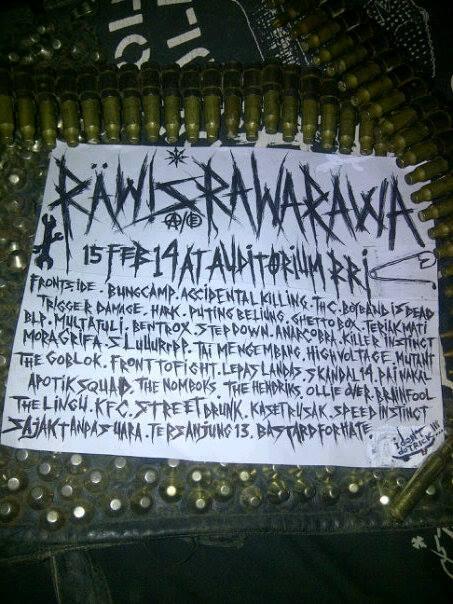 RÄWIS RAWARAWA
A E
15 FEB 14 AT AUDITORIUM RRI
FRONTSIDE . BUNGCAMP . ACCIDENTAL KILLING . THC . BOYBAND IS DEAD
TRIGGER DAMAGE . HARK . PUTING BELIUNG . GHETTO BOX . TERIAK MATI
BLP . MULTATULI . BENTROX . STEP DOWN . ANARCOBRA . KILLER INSTINCT
MORAGRIFA . SLUUURPP . TAI MENGEMBANG . HIGH VOLTAGE . MUTANT
THE GOBLOK . FRONT TO FIGHT . LEPAS LANDAS . SKANDAL 14 . DAI NAKAL
APOTIK SQUAD . THE NOMBOKS . THE HENDRIKS . OLLIE OVER . BRAINFOOL
THE LINGU . KFC . STREET DRUNK . KASET RUSAK . SPEED INSTINCT
SAJAK TANPA SUARA . TERSANJUNG 13 . BASTARD FOR HATE